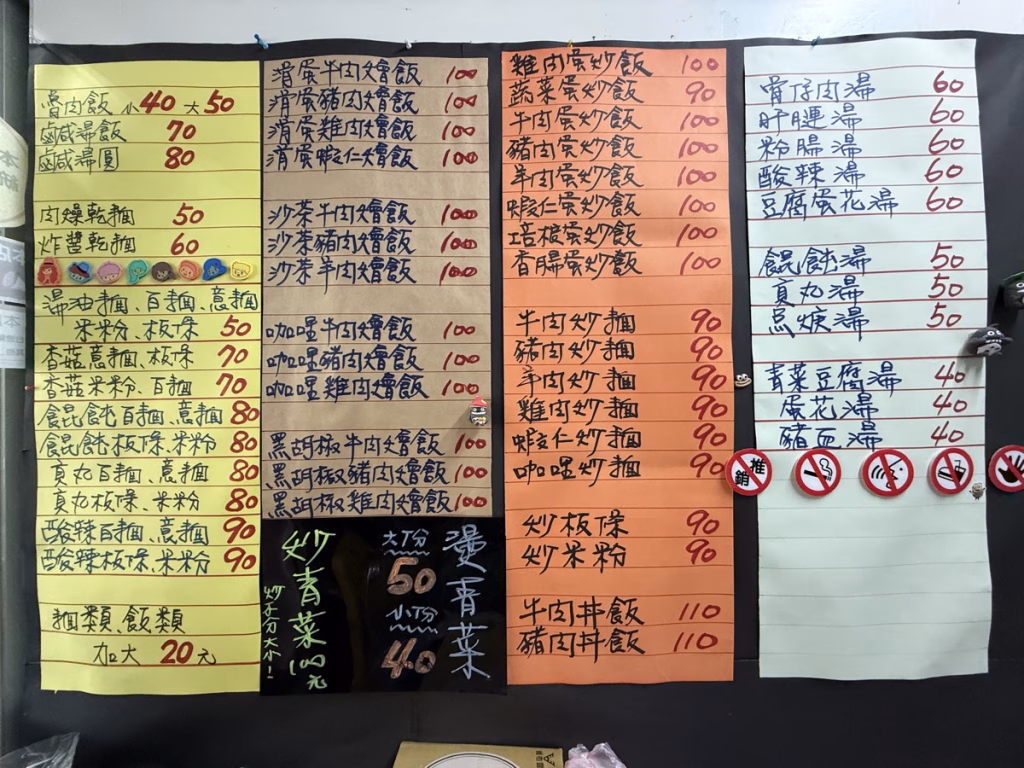 魯肉飯 小40 大50
鹹湯飯 70
鹹湯圓 80
肉燥乾麵 50
炸醬乾麵 60
湯油麵、百麵、意麵
米粉、板條 50
香菇意麵、板條 70
香菇米粉、百麵 70
餛飩百麵、意麵 80
餛飩板條、米粉 80
貢丸百麵、意麵 80
貢丸板條、米粉 80
酸辣百麵、意麵 90
酸辣板條、米粉 90
麵類、飯類
加大 20元
滑蛋牛肉燴飯 100
滑蛋豬肉燴飯 100
滑蛋雞肉燴飯 100
滑蛋蝦仁燴飯 100
沙茶牛肉燴飯 100
沙茶豬肉燴飯 100
沙茶羊肉燴飯 100
咖哩牛肉燴飯 100
咖哩豬肉燴飯 100
咖哩雞肉燴飯 100
黑胡椒牛肉燴飯 100
黑胡椒豬肉燴飯 100
黑胡椒雞肉燴飯 100
燙青菜
大份
50
小份
40
炒青菜100元
炒不分大小!
雞肉蛋炒飯 100
蔬菜蛋炒飯 90
牛肉蛋炒飯 100
豬肉蛋炒飯 100
羊肉蛋炒飯 100
蝦仁蛋炒飯 100
培根蛋炒飯 100
香腸蛋炒飯 100
牛肉炒麵 90
豬肉炒麵 90
羊肉炒麵 90
雞肉炒麵 90
蝦仁炒麵 90
咖哩炒麵 90
炒板條 90
炒米粉 90
牛肉丼飯 110
豬肉丼飯 110
骨仔肉湯 60
肝膶湯 60
粉腸湯 60
酸辣湯 60
豆腐蛋花湯 60
餛飩湯 50
貢丸湯 50
魚焿湯 50
青菜豆腐湯 40
蛋花湯 40
豬血湯 40
推銷